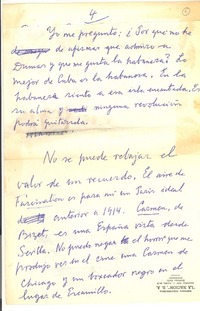 4
Yo me pregunto: ¿Por qué no he
de dejar de afirmar que admiro a
Dumas y que me gusta la habanera? Lo
mejor de Cuba es la habanera. En la
habanera siento a esa isla encantada. Es
su alma y ninguna revolución
podrá quitársela.
No se puede rebajar el
valor de un recuerdo. El aire de
Fascination es para mí un París ideal
anterior a 1914. Carmen, de
Bizet, es una España vista desde
Sevilla. No puedo negar el horror que me
produjo ver en el cine una Carmen de
Chicago y un boxeador negro en el
lugar de Escamillo.